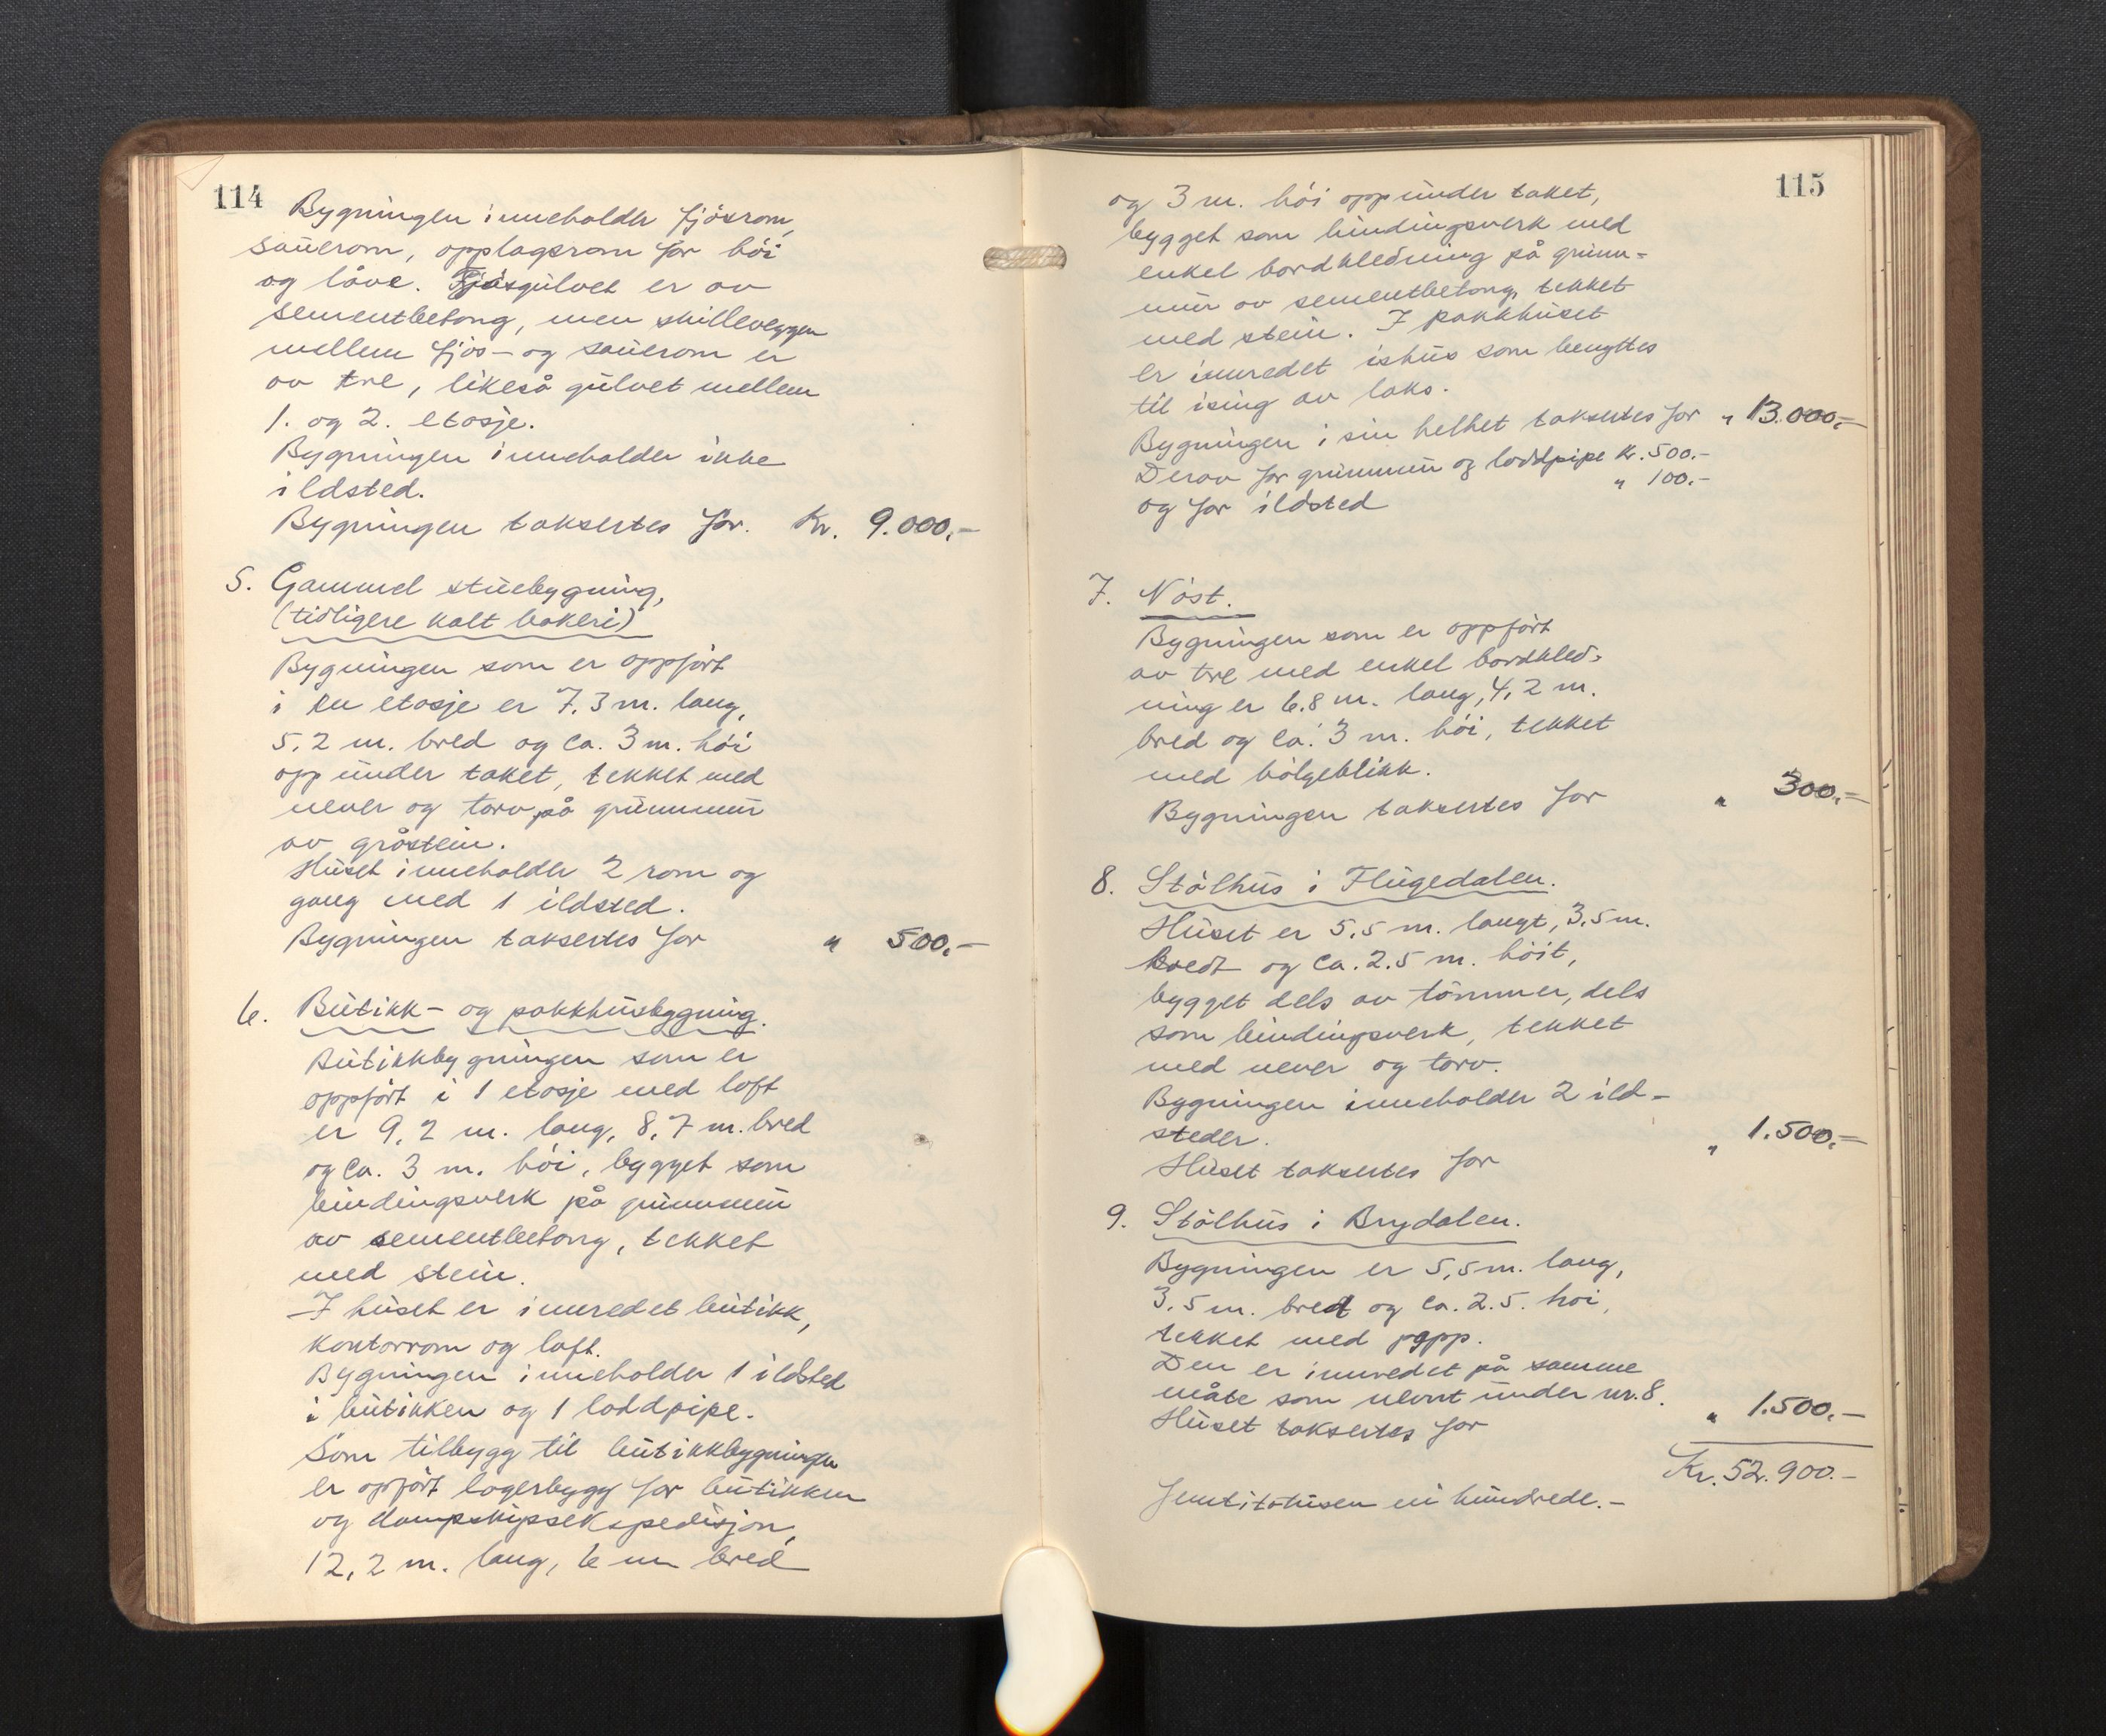 114
Bygningen inneholder fjösrom,
sauerom, opplagsrom for höi
og låve. Fjösgulvet er av
sementbetong, men skilleveggen
mellem fjös- og sauerom er
av tre, likeså gulvet mellem
1. og 2. etasje.
Bygningen inneholder ikke
ildsted.
Bygningen takseres for. Kr. 9.000,-
5. Gammel stuebygning,
(tidligere kalt bakeri)
Bygningen som er oppfört
i en etasje er 7,3 m. lang,
5,2 m. bred og ca. 3 m. höi
opp under taket, tekket med
never og torv, på grunnmur
av gråstein.
Huset inneholder 2 rom og
gang med 1 ildsted.
Bygningen takseres for " 500,-
6. Butikk- og pakkhusbygning.
Butikkbygningen som er
oppfört i 1 etasje med loft
er 9,2 m. lang, 8,7 m. bred
og ca. 3 m. höi, bygget som
bindingsverk på grunnmur
av sementbetong, tekket
med stein.
I huset er innredet butikk,
kontorrom og loft.
Bygningen inneholder 1 ildsted
i butikken og 1 loddpipe.
Som tilbygg til butikkbygningen
er opfört lagerbygg for butikken
og dampskipsekspedisjon,
12,2 m. lang, 6 m bred
115
og 3 m. höi opp under taket,
bygget som bindingsverk med
enkel bordkledning på grunn-
mur av sementbetong, tekket
med stein. I pakkhuset
er innredet ishus som benyttes
til ising av laks.
Bygningen i sin helhet takseres for " 13.000,-
Derav for grunnmur og loddpipe Kr. 500.-
og for ildsted " 100.-
7. Nöst.
Bygningen som er oppfört
av tre med enkel bordkled-
ning er 6.8 m. lang, 4,2 m.
bred og ca. 3 m. höi, tekket
med bölgeblikk.
Bygningen takseres for " 300,-
8. Stölhus i Flugedalen.
Huset er 5,5 m. langt, 3,5 m.
bredt og ca. 2.5 m. höit,
bygget dels av tömmer, dels
som bindingsverk, tekket
med never og torv.
Bygningen inneholder 2 ild-
steder.
Huset takseres for " 1.500,-
9. Stölhus i Brydalen.
Bygningen er 5,5 m. lang,
3,5 m. bred og ca. 2.5. höi,
tekket med papp.
Den er innredet på samme
måte som nevnt under nr. 8.
Huset takseres for " 1.500,-
Kr. 52.900.-
Femtitotusen ni hundrede.-